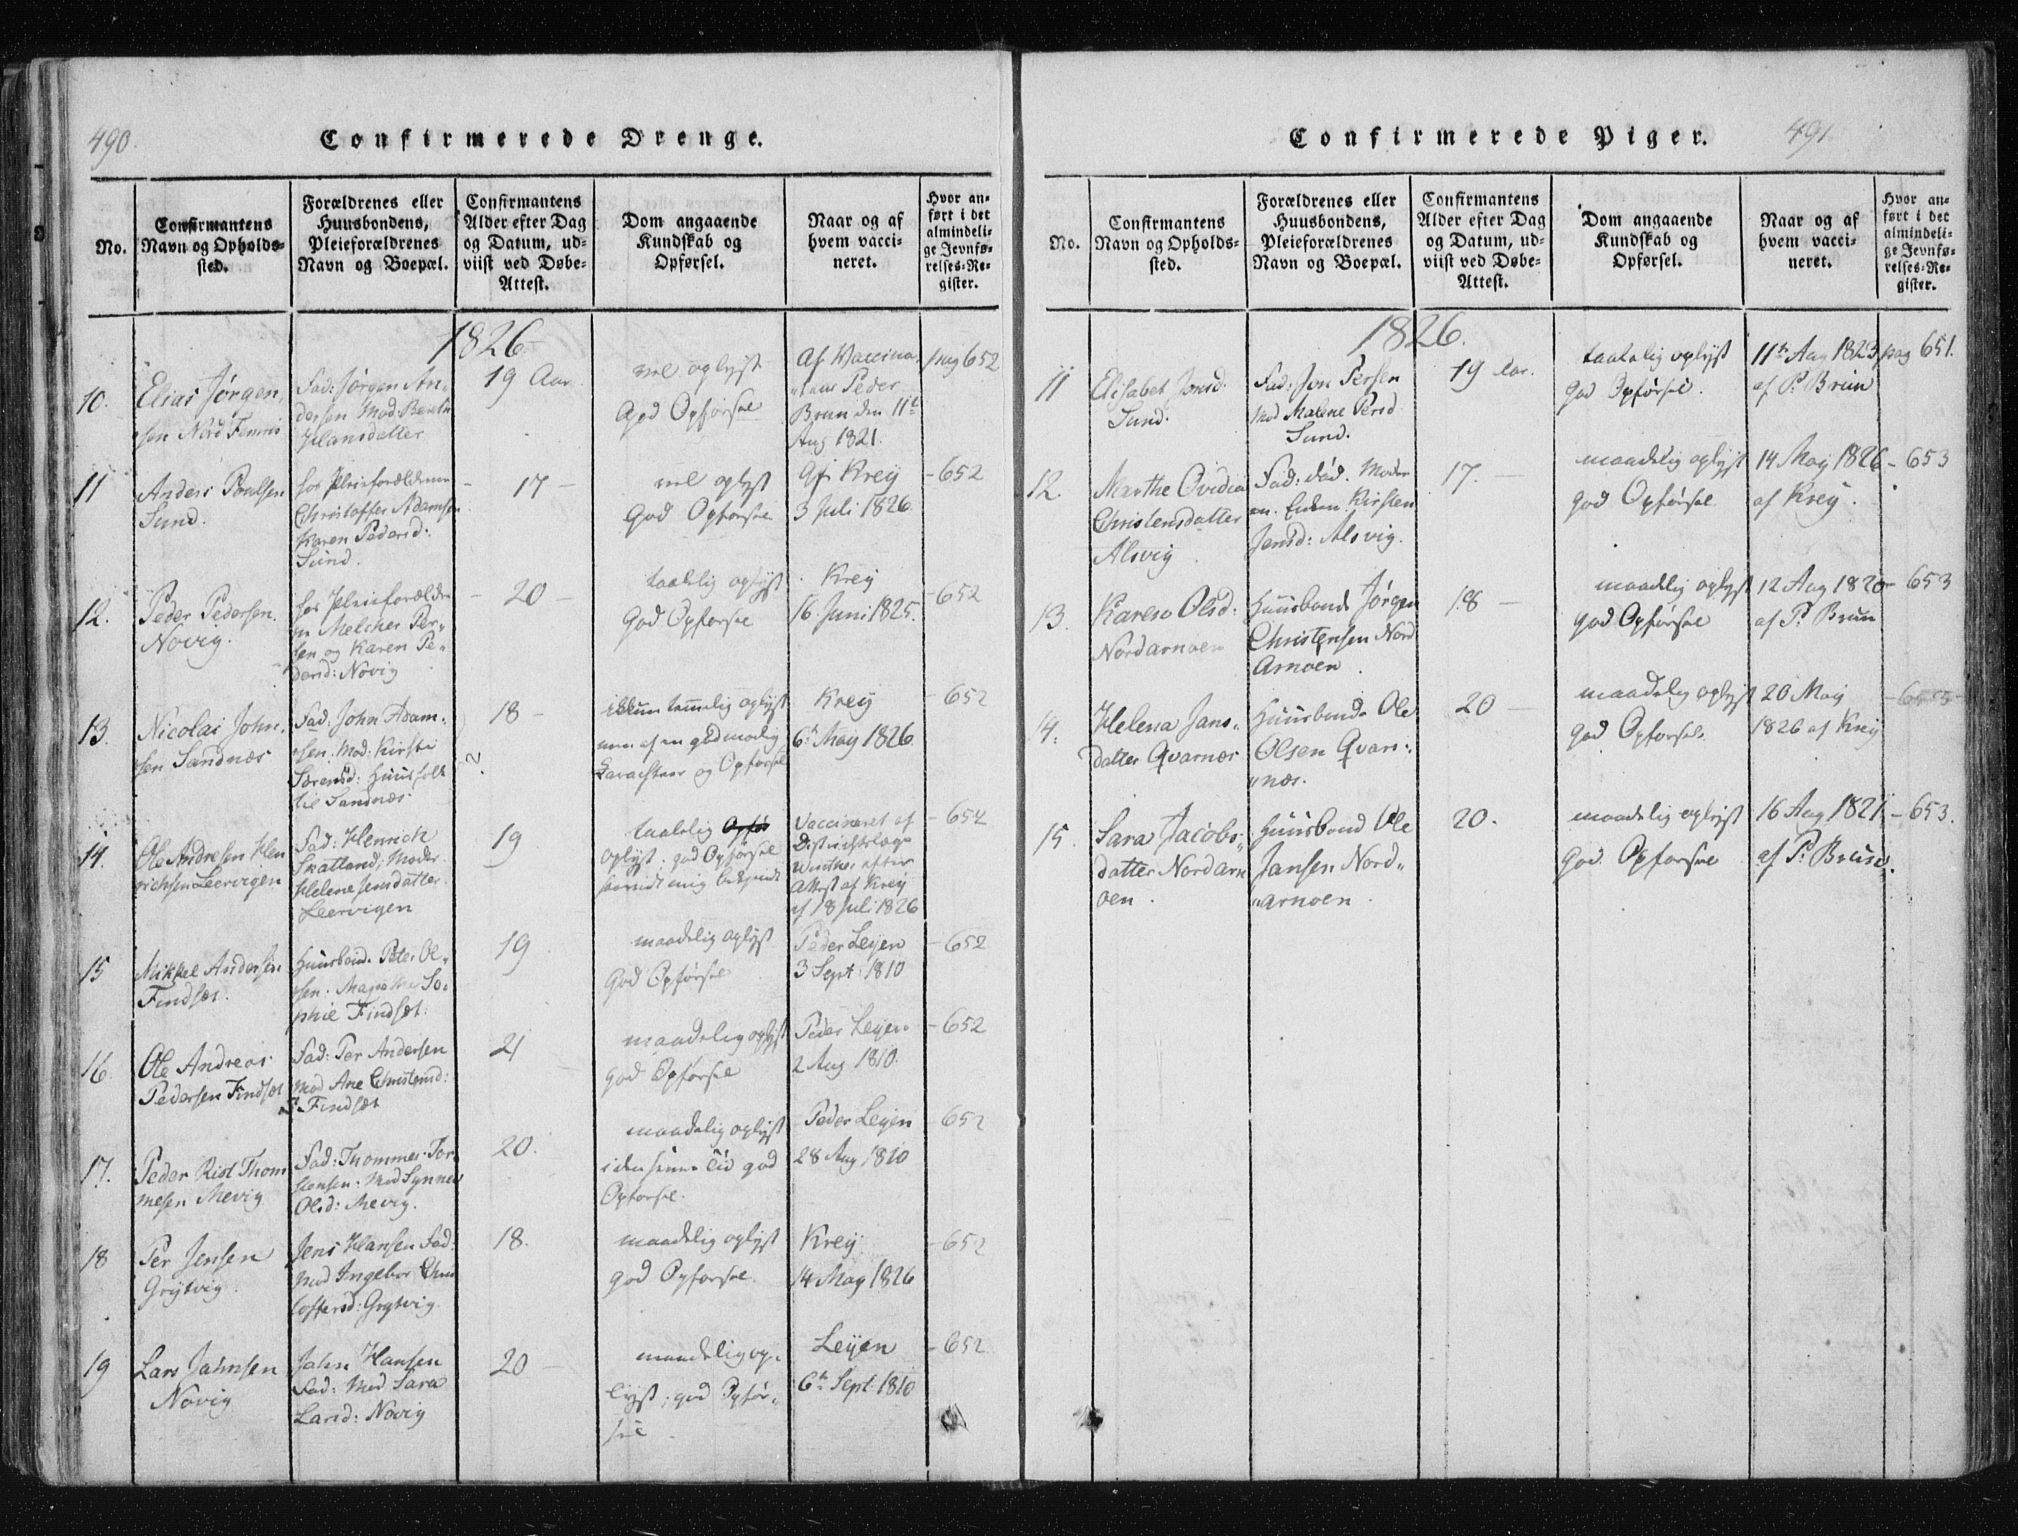 490.
Confirmerede Drenge.
No.
Confirmantens
Navn og Opholds-
sted.
Forældrenes eller
Huusbondens,
Pleieforældrenes
Navn og Boepæl.
Confirmantens
Alder efter Dag
og Datum, ud-
viist ved Døbe-
Attest.
Dom angaaende
Kundskab og
Opførsel.
Naar og af
hvem vacci-
neret.
Hvor an-
ført i det
almindeli-
ge Jevnfø-
relses-Re-
gister.
1826
10.
Elias Jørgen,
sen Nord Femris
Fad: Jørgen An,
dersen Mod: Bereth
Hansdatter
19 Aar.
vel oplyst
God Opførsel
Af Vaccina,
Peder
Brun den 11te
Aug 1821.
pag 652
11
Anders Poulsen
Sund.
hos Pleieforældrene
Christoffer Adamsen
Karen Pedersd:
Sund.
- 17 -
vel oplyst
God Opførsel
Krey
3 Juli 1826
- 652
12.
Peder Pedersen
Novig.
hos Pleieforældre
ne Melcher Per-
sen og Karen Pe-
dersd: Novig
- 20 -
taalelig oplyst
God Opførsel
Krey
16 Juni 1825.
- 652
13.
Nicolai John,
sen Sandnæs
Fad: John Adam-
sen. Mod: Kirsti
Sørensd: Huusfolk
til Sandnæs
18 -
ikkun temmelig oplyst
men af en godmodig
Karachteer og Opførsel
Krey
6te May 1826
- 652
14.
Ole Andresen Hen
richsen Leervigen
Fad: Henrich
Skatland; Moder
Helene Jensdatter
Leervigen
19
taalelig Opfør
oplyst; god Opførsel
saavidt mig bekjendt
Vaccineret af
Districtslæge
Winther efter
Attest af Krey
af 18 Juli 1826
- 652
15
Mikkel Andersen
Findsæt.
Huusbond. Peter Ol-
sen. So-
phie Findsæt.
19.
maadelig oplyst
God Opførsel
Peder Leyen
3 Sept: 1810
- 652
16.
Ole Andreas
Pedersen Findsæt
Fad: Per Andersen
Mod Ane Christensd:
Findsæt
21
maadelig oplyst
god Opførsel
Peder Leyen
2 Aug 1810.
- 652
17.
Peder Rist Thom
mesen Mevig
Fad: Thommes Tor
stensen: Mod Synnev
Olsd: Mevig.
20.
maadelig oplyst
i den senere Tid god
Opførsel.
Peder Leyen
28 Aug 1810
- 652
18
Per Jensen
Grytvig.
Jens Hansen Fad:
Mod Ingebor Chris
toffersd: Grytvig
18.
maadelig oplyst
god Opførsel.
Krey
14 May 1826
- 652
19
Lars Jahnsen
Novig
Jahn Hansen
Fad: Mod Sara
Larsd: Novig
20 -
maadelig op-
lyst; god Opfør-
sel
Leyen
6te Sept. 1810
- 652
491
Confirmerede Piger.
No.
Confirmantens
Navn og Opholds-
sted.
Forældrenes eller
Huusbondens,
Pleieforældrenes
Navn og Boepæl.
Confirmantens
Alder efter Dag
og Datum, ud-
viist ved Døbe-
Attest.
Dom angaaende
Kundskab og
Opførsel.
Naar og af
hvem vacci-
neret.
Hvor an-
ført i det
almindeli-
ge Jevnfø-
relses-Re-
gister.
1826.
11
Elisabet Jonsd.
Sund.
Fad: Jon Persen
Mod Malene Persd.
Sund.
19 Aar.
taalelig oplyst
god Opførsel.
11te Aug 1823
af P. Brun
pag 651.
12.
Marthe Ovidia
Christensdatter
Alsvig
Fad: død. Moder
en. Enken Kirsten
Jensd: Alsvig.
17. -
maadelig oplyst
god Opførsel
14 May 1826
af Krey.
- 653
13.
Karen Olsd:
Nordarnøen
Huusbond Jørgen
Christensen Nord
Arnøen.
18 -
maadelig oplyst
god Opførsel
12 Aug 1820
af P. Brun
- 653
14.
Helena Jans-
datter Qvarnæs
Huusbond Ole
Olsen Qvar-
næs.
20 -
maadelig oplyst
god Opførsel.
20 May
1826 af Krey
- 653
15.
Sara Jacobs-
datter Nordarn
øen.
Huusbond Ole
Jansen Nord"
"arnøen.
20.
maadelig oplyst
god Opførsel
16 Aug 1821
af P. Brun.
- 653.